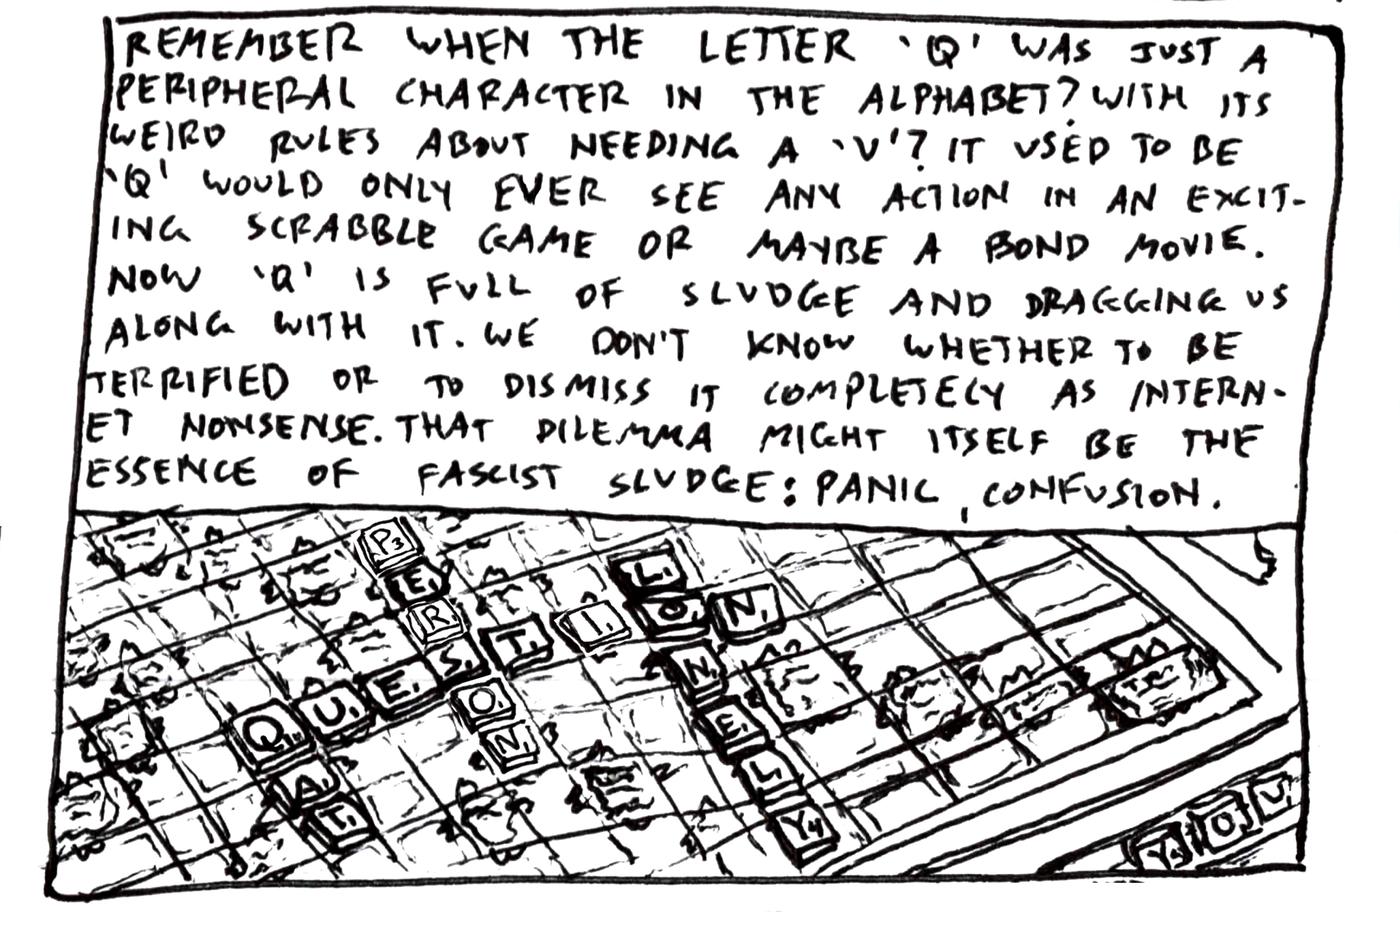 REMEMBER WHEN THE LETTER 'Q' WAS JUST A
PERIPHERAL CHARACTER IN THE ALPHABET? WITH ITS
WEIRD RULES ABOUT NEEDING A 'U'? IT USED TO BE
'Q' WOULD ONLY EVER SEE ANY ACTION IN AN EXCIT-
ING SCRABBLE GAME OR MAYBE A BOND MOVIE.
NOW 'Q' IS FULL OF SLUDGE AND DRAGGING US
ALONG WITH IT. WE DON'T KNOW WHETHER TO BE
TERRIFIED OR TO DISMISS IT COMPLETELY AS INTERN-
ET NONSENSE. THAT DILEMMA MIGHT ITSELF BE THE
ESSENCE OF FASCIST SLUDGE: PANIC, CONFUSION.
PERSON
QUESTION
QAT
LONELY
YOU